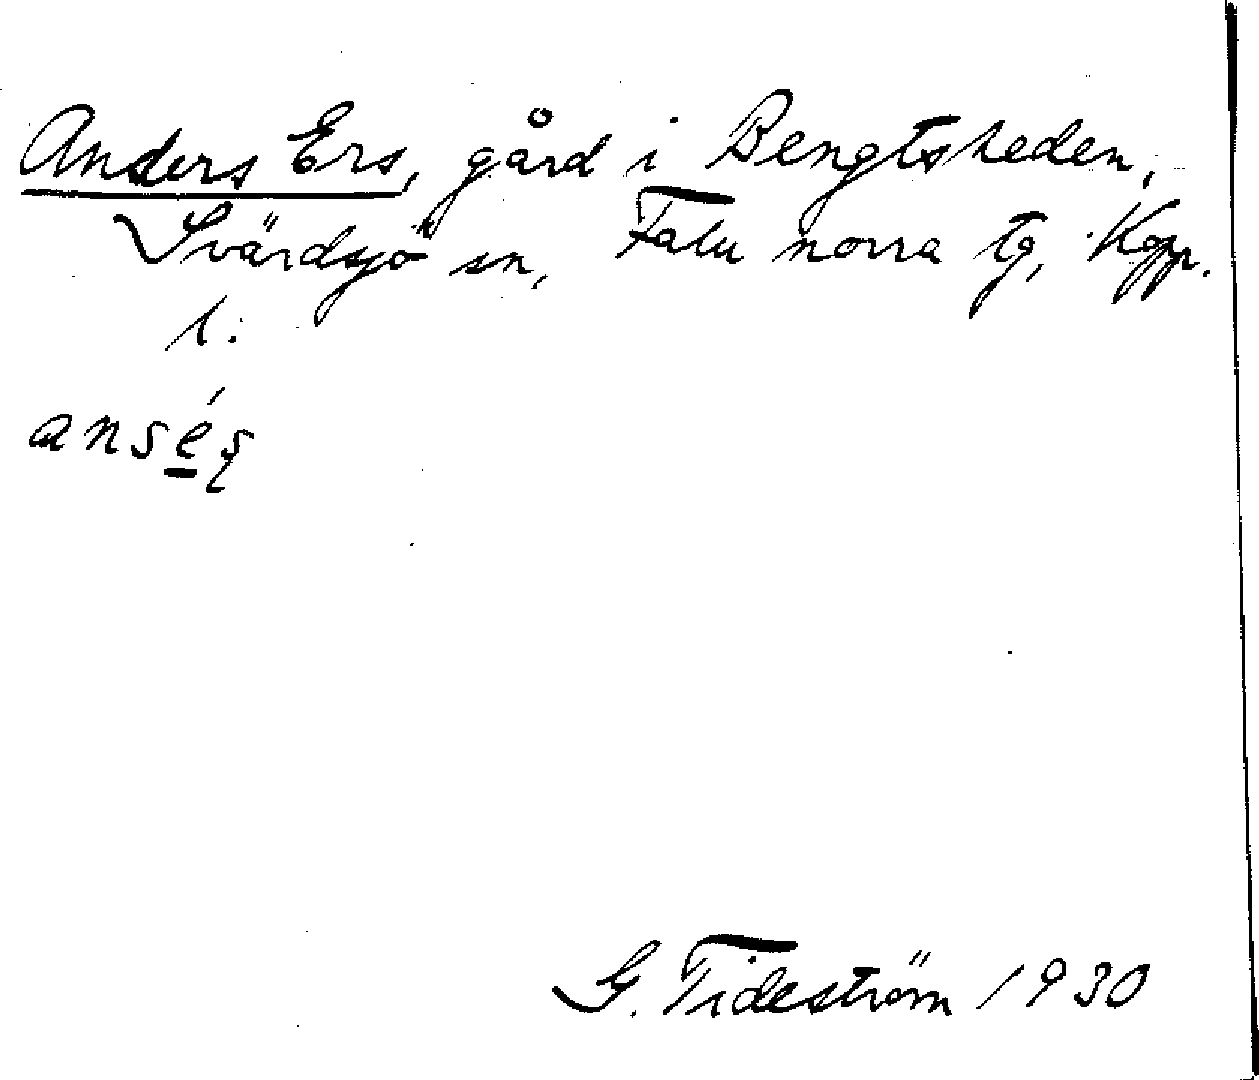 Anders Ers, gård i Bengtsheden,
Svärdsjö sn, Falu norra tg, Kopp.
l.
ansés̨
G. Tideström 1930